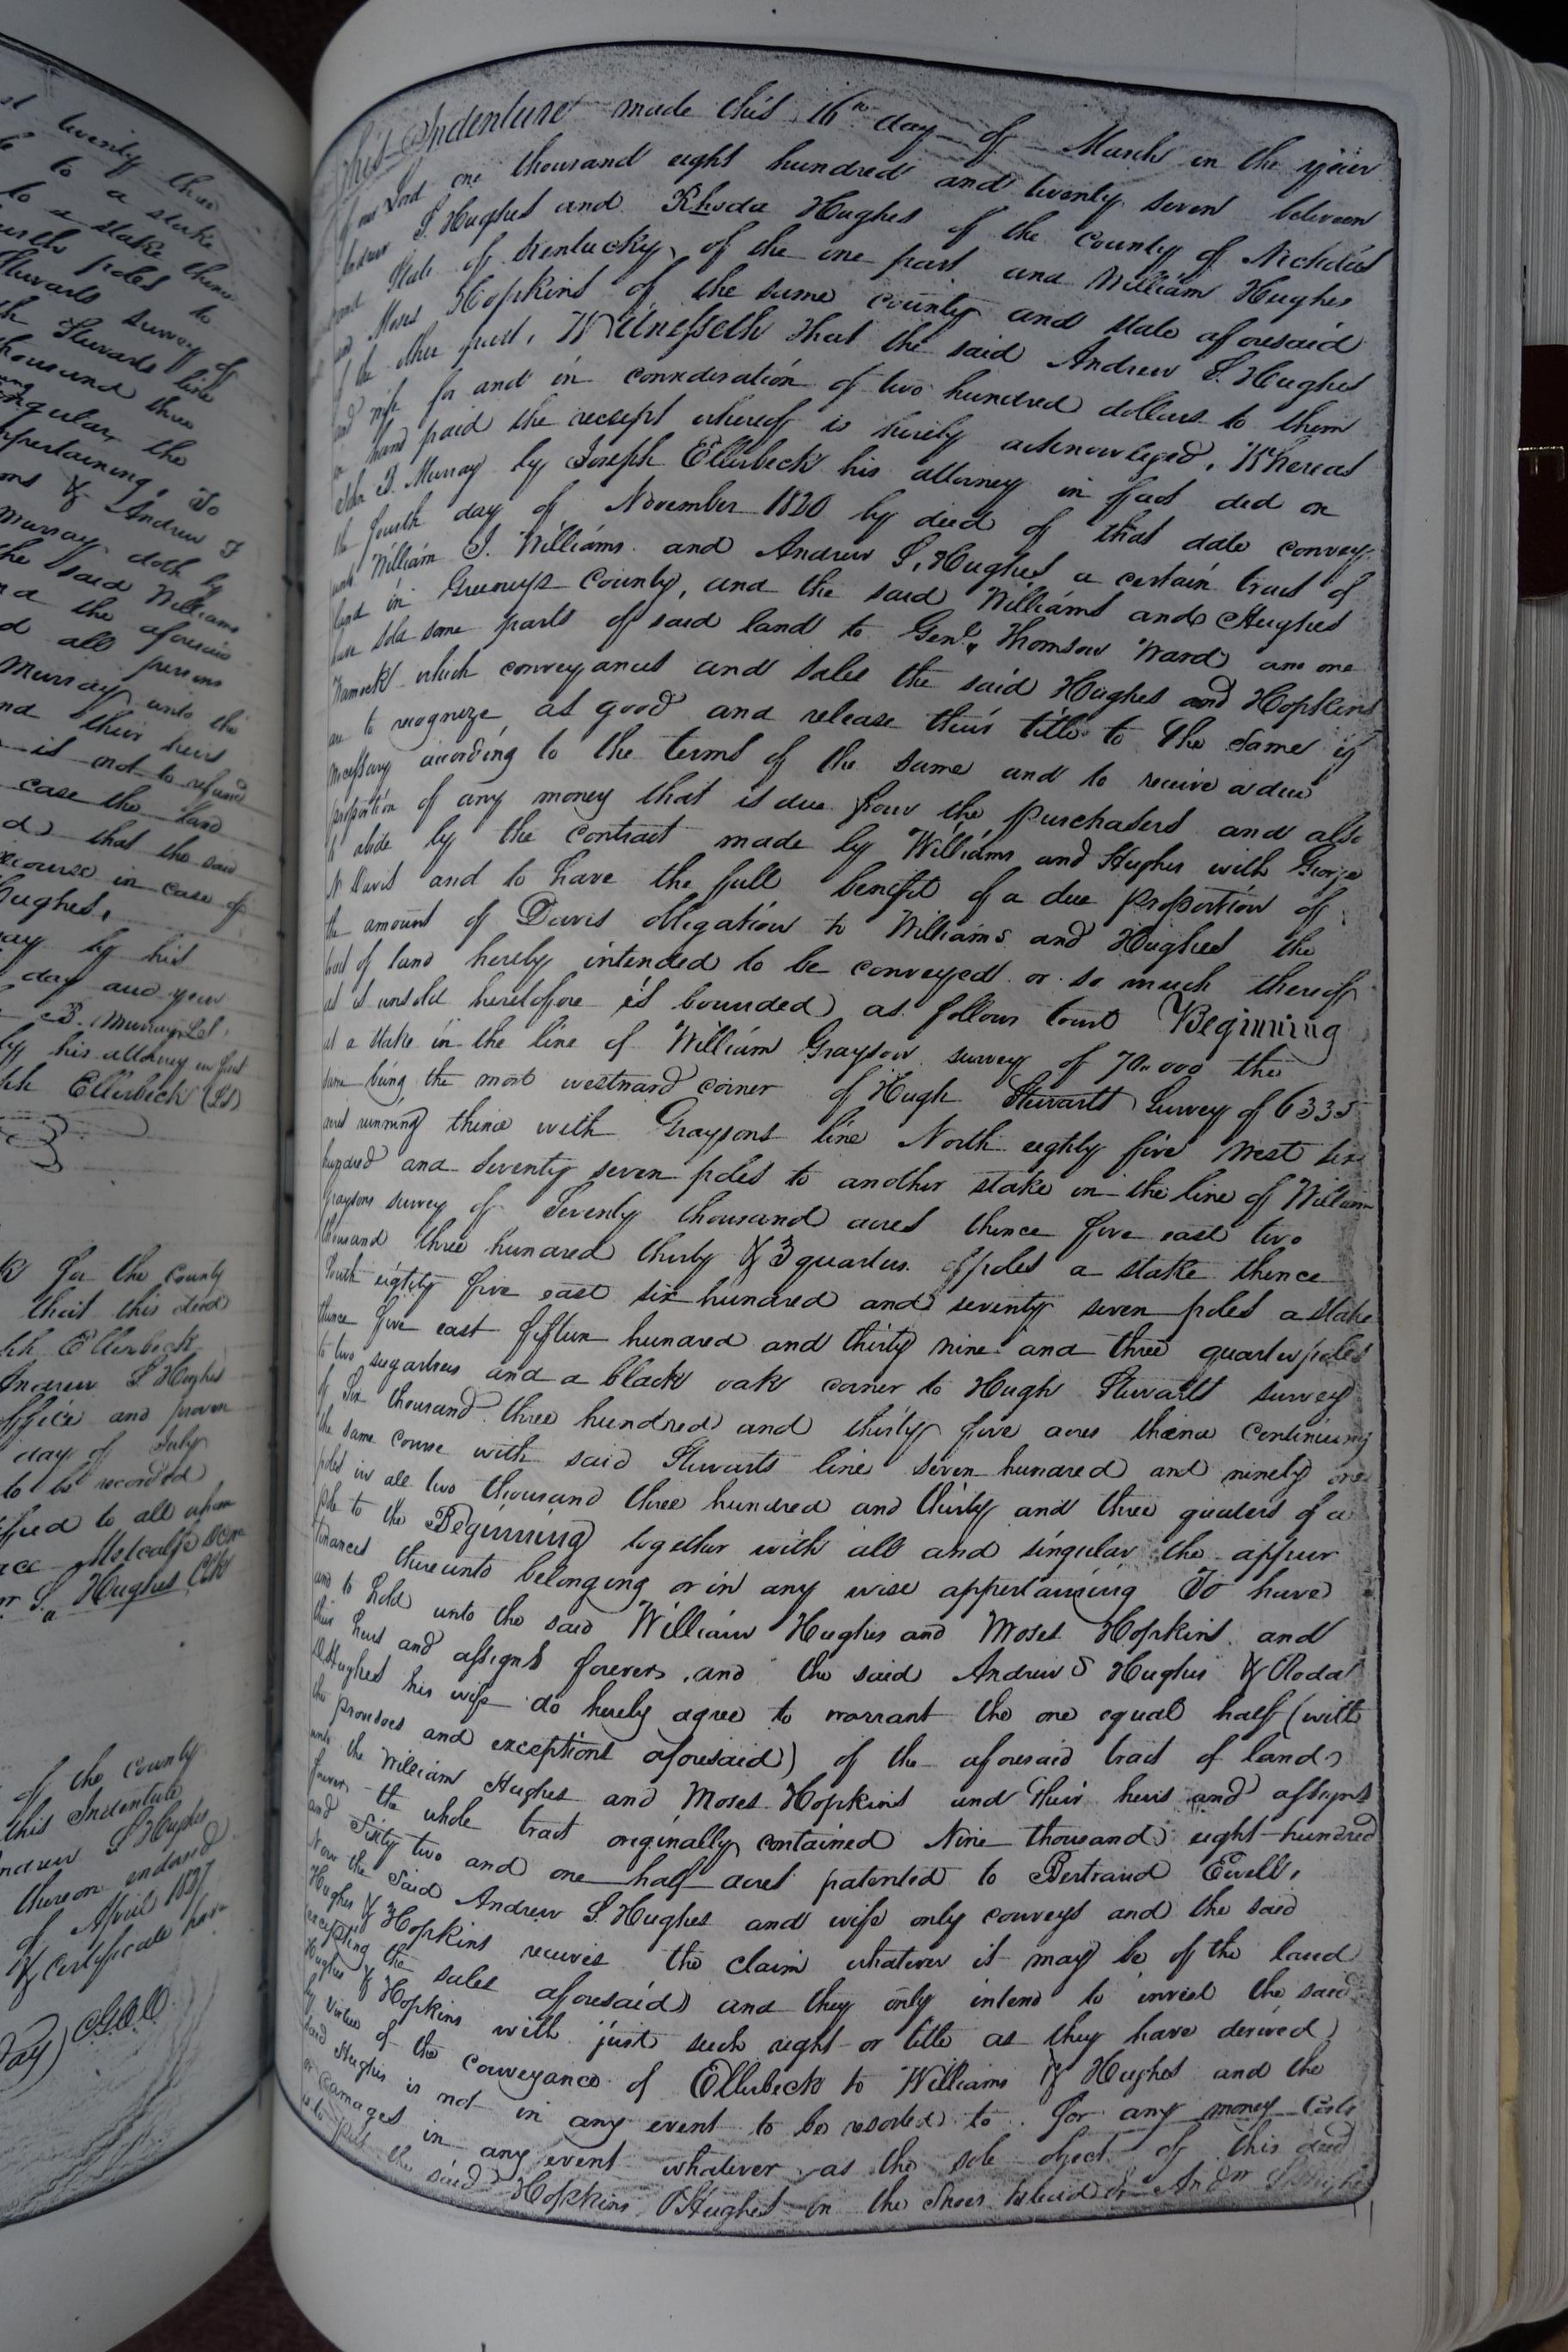 st twenty three
to a stake
to a stake thence
poles to
Stuwarts survey of
th Stuwards line
thousand three
singular, the
appertaining, To
ons & Andrew S
Murray doth by
the said Williams
and the aforesaid
d all persons
Murray unto the
and their heirs
is not to refund
case the land
d) that the said
recourse in case of
Hughes,
ay by his
day and year
B. Murray Sel.
by his attorney in fact
ph Ellerbeck (LS)
k for the County
that this deed
ph Ellerbeck
Andrew S Hughes
office and proven
day of July
to be recorded
fied to all whom
ace Metcalfe
S. Hughes Clk
of the County
this Indenture
Andrew S Hughes
thereon endorsed
of April 1827
& certificate have
This Indenture made this 16th day of March in the year
of our Lord one thousand eight hundred and twenty seven between
Andrew S. Hughes and Rhoda Hughes of the County of Nicholas
and State of Kentucky, of the one part and William Hughes
and Moses Hopkins of the same county and state aforesaid
of the other part, Witnesseth that the said Andrew S. Hughes
and wife for and in consideration of two hundred dollars to them
in hand paid the receipt whereof is hereby acknowleged, Whereas
John B. Murray by Joseph Ellerbeck his attorney in fact did on
the fourth day of November 1820 by deed of that date convey
unto William I. Williams and Andrew S. Hughes a certain tract of
land in Greenup County, and the said Williams and Hughes
have sold some parts of said land to Genl. Thomson Ward and one
Womock which conveyances and sales the said Hughes and Hopkins
are to recognize as good and release their title to the same if
necessary according to the terms of the same and to receive a due
proportion of any money that is due from the purchasers and also
to abide by the contract made by Williams and Hughes with George
N Davis and to have the full benefit of a due proportion of
the amount of Davis obligation to Williams and Hughes the
tract of land hereby intended to be conveyed or so much thereof
as is unsold heretofore is bounded as follows towit Beginning
at a stake in the line of William Grayson survey of 70,000 the
same being the most westward corner of Hugh Stuwarts Survey of 6335
and running thence with Graysons line North eighty five West six
hundred and seventy seven poles to another stake in the line of William
Graysons survey of Seventy thousand acres thence five east two
thousand three hundred thirty & 3 quarters of poles a stake thence
South eighty five east six hundred and seventy seven poles a stake
thence five east fifteen hundred and thirty nine and three quarter poles
to two sugartrees and a black oak corner to Hugh Stuwarts survey
of Six thousand three hundred and thirty five acres thence continuing
the same course with said Stuwarts line seven hundred and ninety one
poles in all two thousand three hundred and thirty and three quaters of a
pole to the Beginning together with all and singular the appur
tenances thereunto belonging or in any wise appertaining To have
and to hold unto the said William Hughes and Moses Hopkins and
their heirs and assigns forever, and the said Andrew S Hughes & Rhoda
Hughes his wife do hereby agree to warrant the one equal half (with
the provisoes and exceptions aforesaid) of the aforesaid tract of land
unto the William Hughes and Moses Hopkins and their heirs and assigns
forever the whole tract originally contained Nine thousand eight hundred
and Sixty two and one half acres patented to Bertrand Ewell,
Now the Said Andrew S. Hughes and wife only conveys and the said
Hughes & Hopkins receives the claim whatever it may be of the land
(excepting the sales aforesaid) and they only intend to invest the said
Hughes & Hopkins with just such right or title as they have derived
by virtue of the conveyance of Ellerbeck to Williams & Hughes and the
said Hughes is not in any event to be resorted to for any money Costs
or damages in any event whatever, as the sole object of this deed
is to put the said Hopkins & Hughes in the Shoes